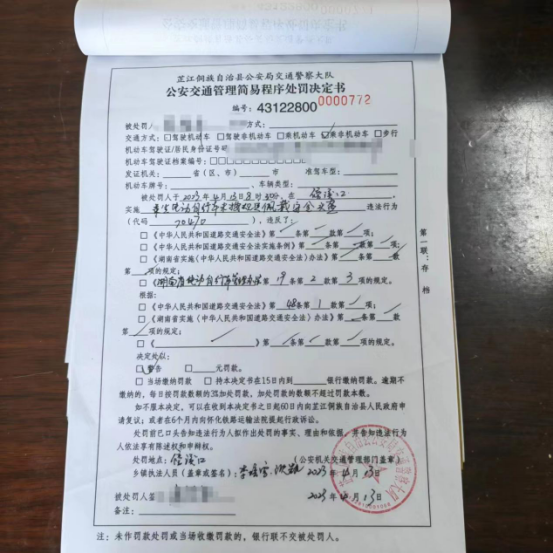 芷江侗族自治县公安局交通警察大队
公安交通管理简易程序处罚决定书
编号：43122800 0000772
被处罚 方式：
交通方式：□驾驶机动车 □驾驶非机动车 □乘机动车 □乘非机动车 □步行
机动车驾驶证/居民身份证号码
机动车驾驶证档案编号：
发证机关： 省（区、市） 市 准驾车型：
机动车牌号： 车辆类型：
被处罚人于2023年4月13日8时30分，在
实施 电动自行车未按规定佩戴安全头盔 违法行为
（代码 ），违反了：
□《中华人民共和国道路交通安全法》第 条第 款第 项；
□《中华人民共和国道路交通安全法实施条例》第 条第 款第 项；
□《湖南省实施〈中华人民共和国道路交通安全法〉办法》第 条第 款第
项的规定；
□《湖南省电动自行车管理办法》第9条第2款第3项的规定。
根据：
□《中华人民共和国道路交通安全法》第 条第1款第 项；
□《湖南省实施〈中华人民共和国道路交通安全法〉办法》第 条第 款
第 项的规定；
□《 》第 条第 款第 项的规定。
决定处以：
□警告 □ 元罚款。
□ 当场缴纳罚款 □ 持本决定书在15日内到 银行缴纳罚款。逾期不
缴纳的，每日按罚款数额的3%加处罚款，加处罚款的数额不超过罚款本数。
如不服本决定，可以在收到本决定书之日起60日内向芷江侗族自治县人民政府申
请复议；或者在6个月内向怀化铁路运输法院提起行政诉讼。
处罚前已口头告知违法行为人拟作出处罚的事实、理由和依据，并告知违法行为
人依法享有陈述权和申辩权。
处罚地点： （公安机关交通管理部门盖章）
乡镇执法人员（盖章或签名）： 2023年4月13日
被处罚人签 2023年4月13日
备注：
注：未作罚款处罚或当场收缴罚款的，银行联不交被处罚人。
第一联：存档